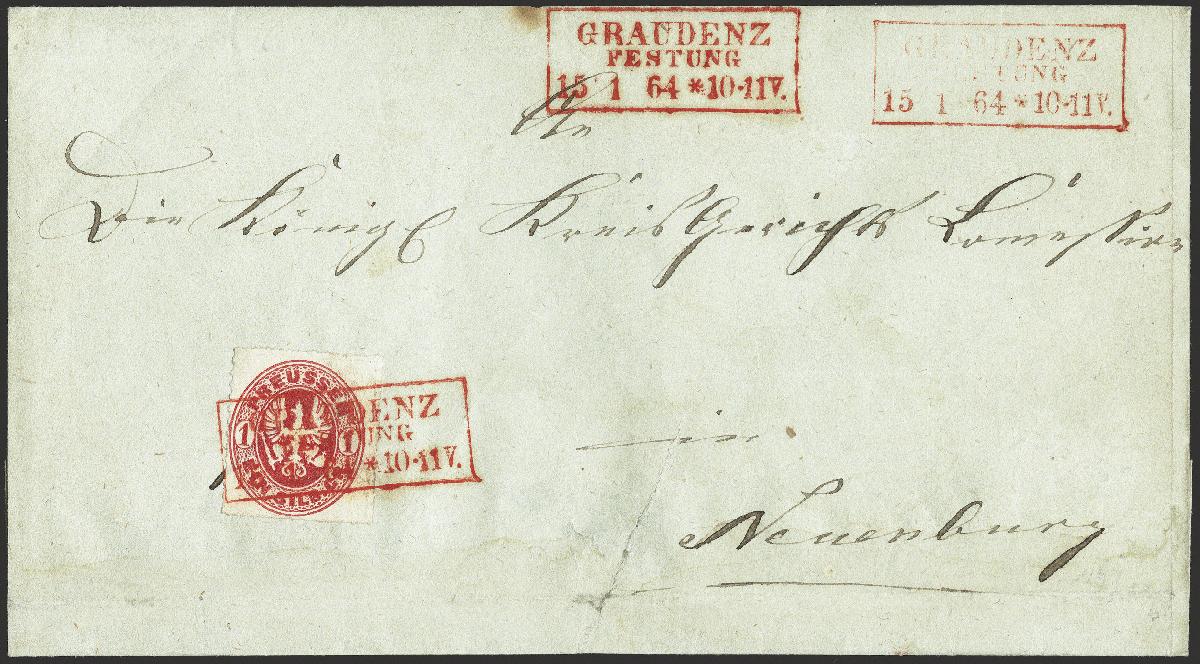 GRAUDENZ
FESTUNG
15 1 64 *10-11V.
GRAUDENZ
FESTUNG
15 1 64 *10-11V.
An
Die Königl Kreis Gerichts
PREUSSEN
1 1
SILB. GR.
DENZ
UNG
*10-11V.
in
Neuenburg